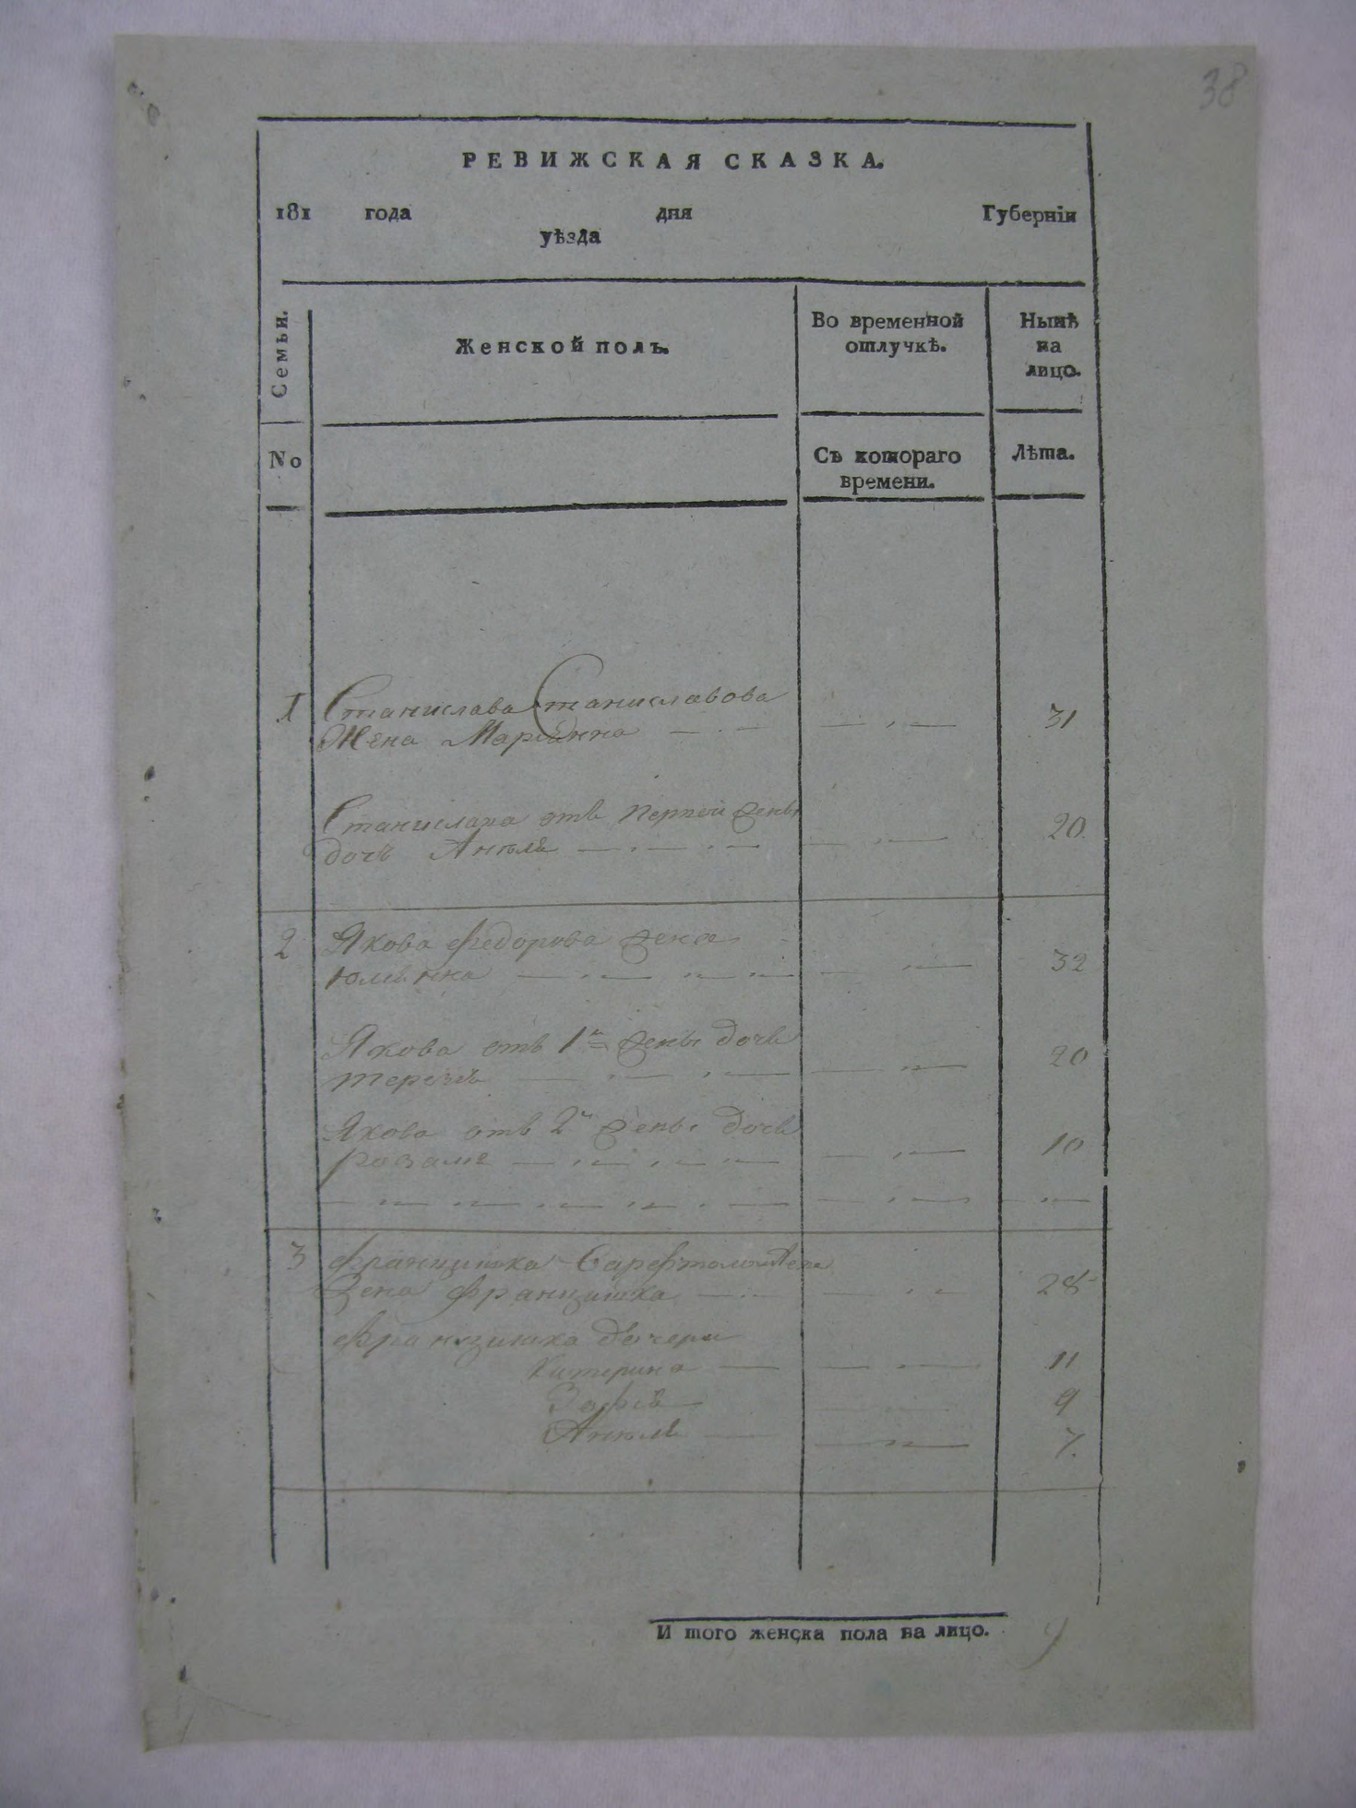 38
РЕВИЖСКАЯ СКАЗКА.
181 года дня Губерніи
уѣзда
Семьи.
Женской полъ.
Во временной
отлучкѣ.
Нынѣ
на
лицо.
No
Съ котораго
времени.
Лѣта.
1 Станислава Станиславова
Жена Маріянна 31
Станислава отъ первой жены
дочь Анеля 20
2 Якова Федорова жена
Юліянка 32
Якова отъ 1й жены дочь
20
Якова отъ 2й жены дочь
Розалія 10
3 Францишка
Жена Францишка 28
Францишка дочери
Катерина 11
Зофія 9
Анеля 7.
И того женска пола на лицо. 9